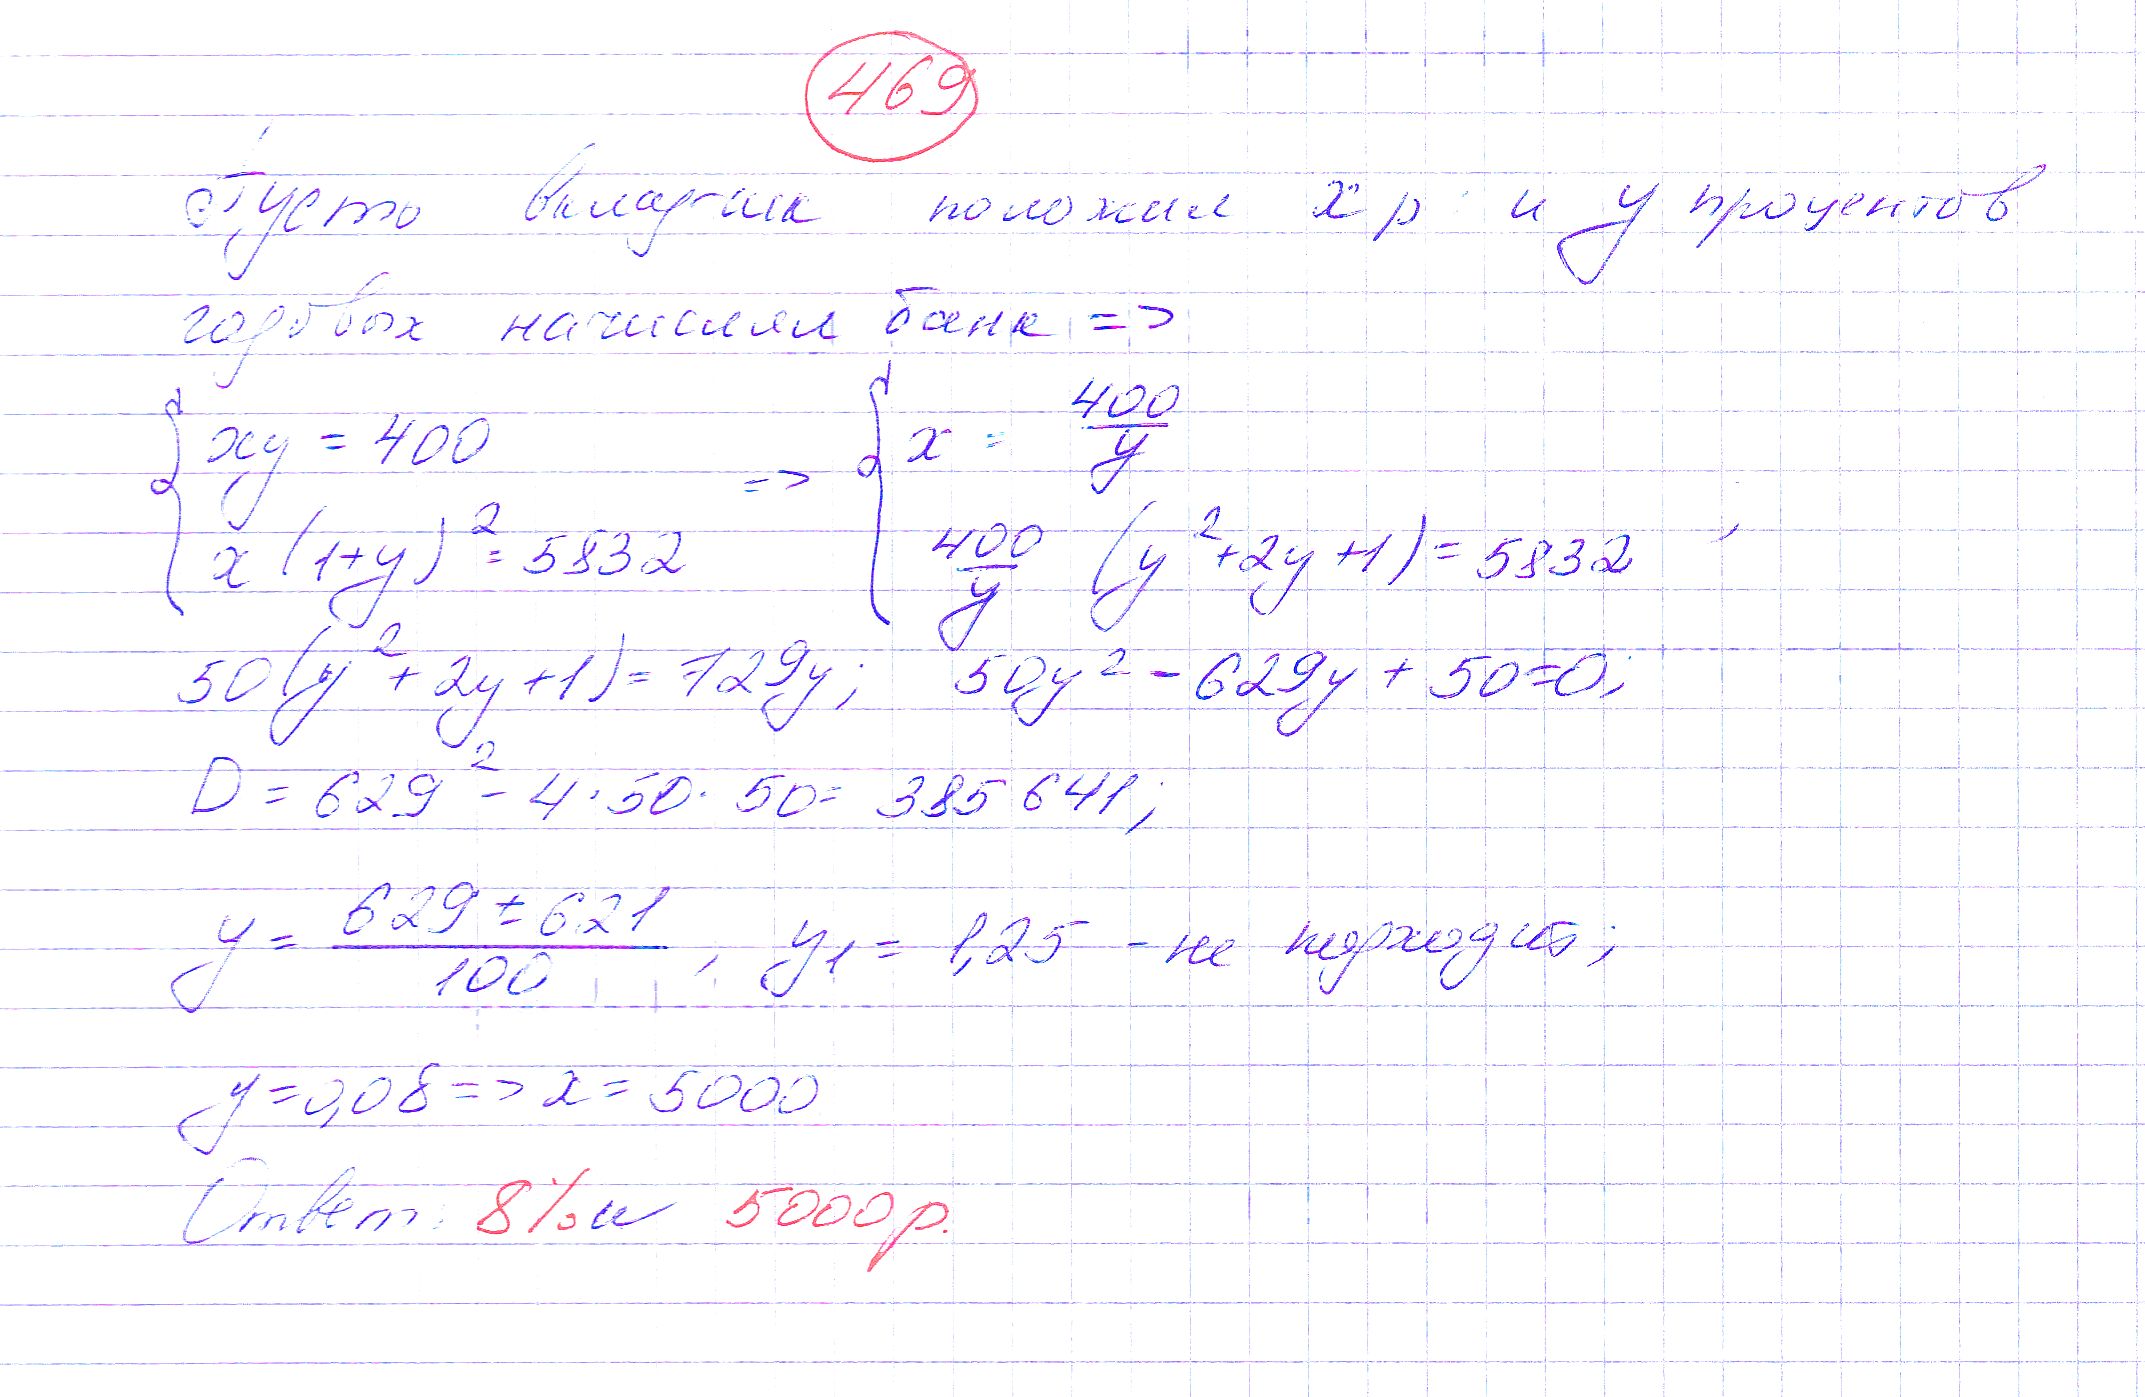 469
Пусть вкладчик положил x р. и y процентов
годовых начислял банк =>
{ xy = 400 => { x = 400/y
{ x(1+y)² = 5832 { 400/y (y²+2y+1) = 5832 ;
50(y²+2y+1) = 729y; 50y² - 629y + 50=0;
D = 629² - 4·50·50= 385 641;
y = (629 ± 621)/100 ; y₁ = 1,25 - не подходит;
y=0,08 => x = 5000
Ответ: 8% и 5000 р.